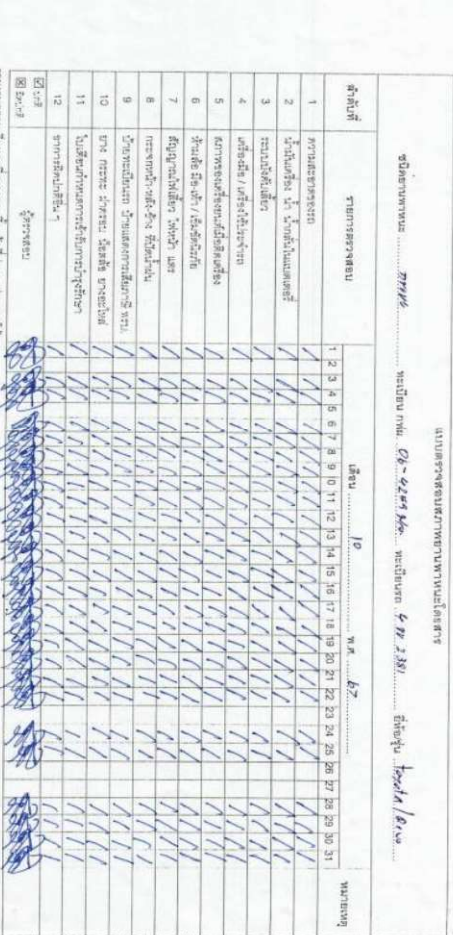 แบบตรวจสอบสภาพยานพาหนะโดยสาร
ชนิดยานพาหนะ ทะเบียน กฟผ. ทะเบียนรถ 2381 ยี่ห้อ/รุ่น Toyota /
ลำดับที่ รายการตรวจสอบ เดือน 10 พ.ศ. 67 หมายเหตุ
1 2 3 4 5 6 7 8 9 10 11 12 13 14 15 16 17 18 19 20 21 22 23 24 25 26 27 28 29 30 31
1 ความสะอาดของรถ
2 น้ำมันเครื่อง น้ำ น้ำกลั่นในแบตเตอรี่
3 ระบบบังคับเลี้ยว
4 เครื่องมือ / เครื่องใช้ประจำรถ
5 สภาพของเครื่องยนต์เมื่อติดเครื่อง
6 ห้ามล้อ มือ-เท้า / เข็มขัดนิรภัย
7 สัญญาณไฟเลี้ยว ไฟหน้า แตร
8 กระจกหน้า-หลัง-ข้าง ที่ปัดน้ำฝน
9 ป้ายทะเบียนรถ ป้ายแสดงการเสียภาษี พรบ.
10 ยาง กระทะ ฝาครอบ น๊อตล้อ ยางอะไหล่
11 ใบเตือนกำหนดการเข้ารับการบำรุงรักษา
12 อาการผิดปกติอื่น ๆ
☑ ปกติ
☒ ผิดปกติ
ผู้ตรวจสอบ